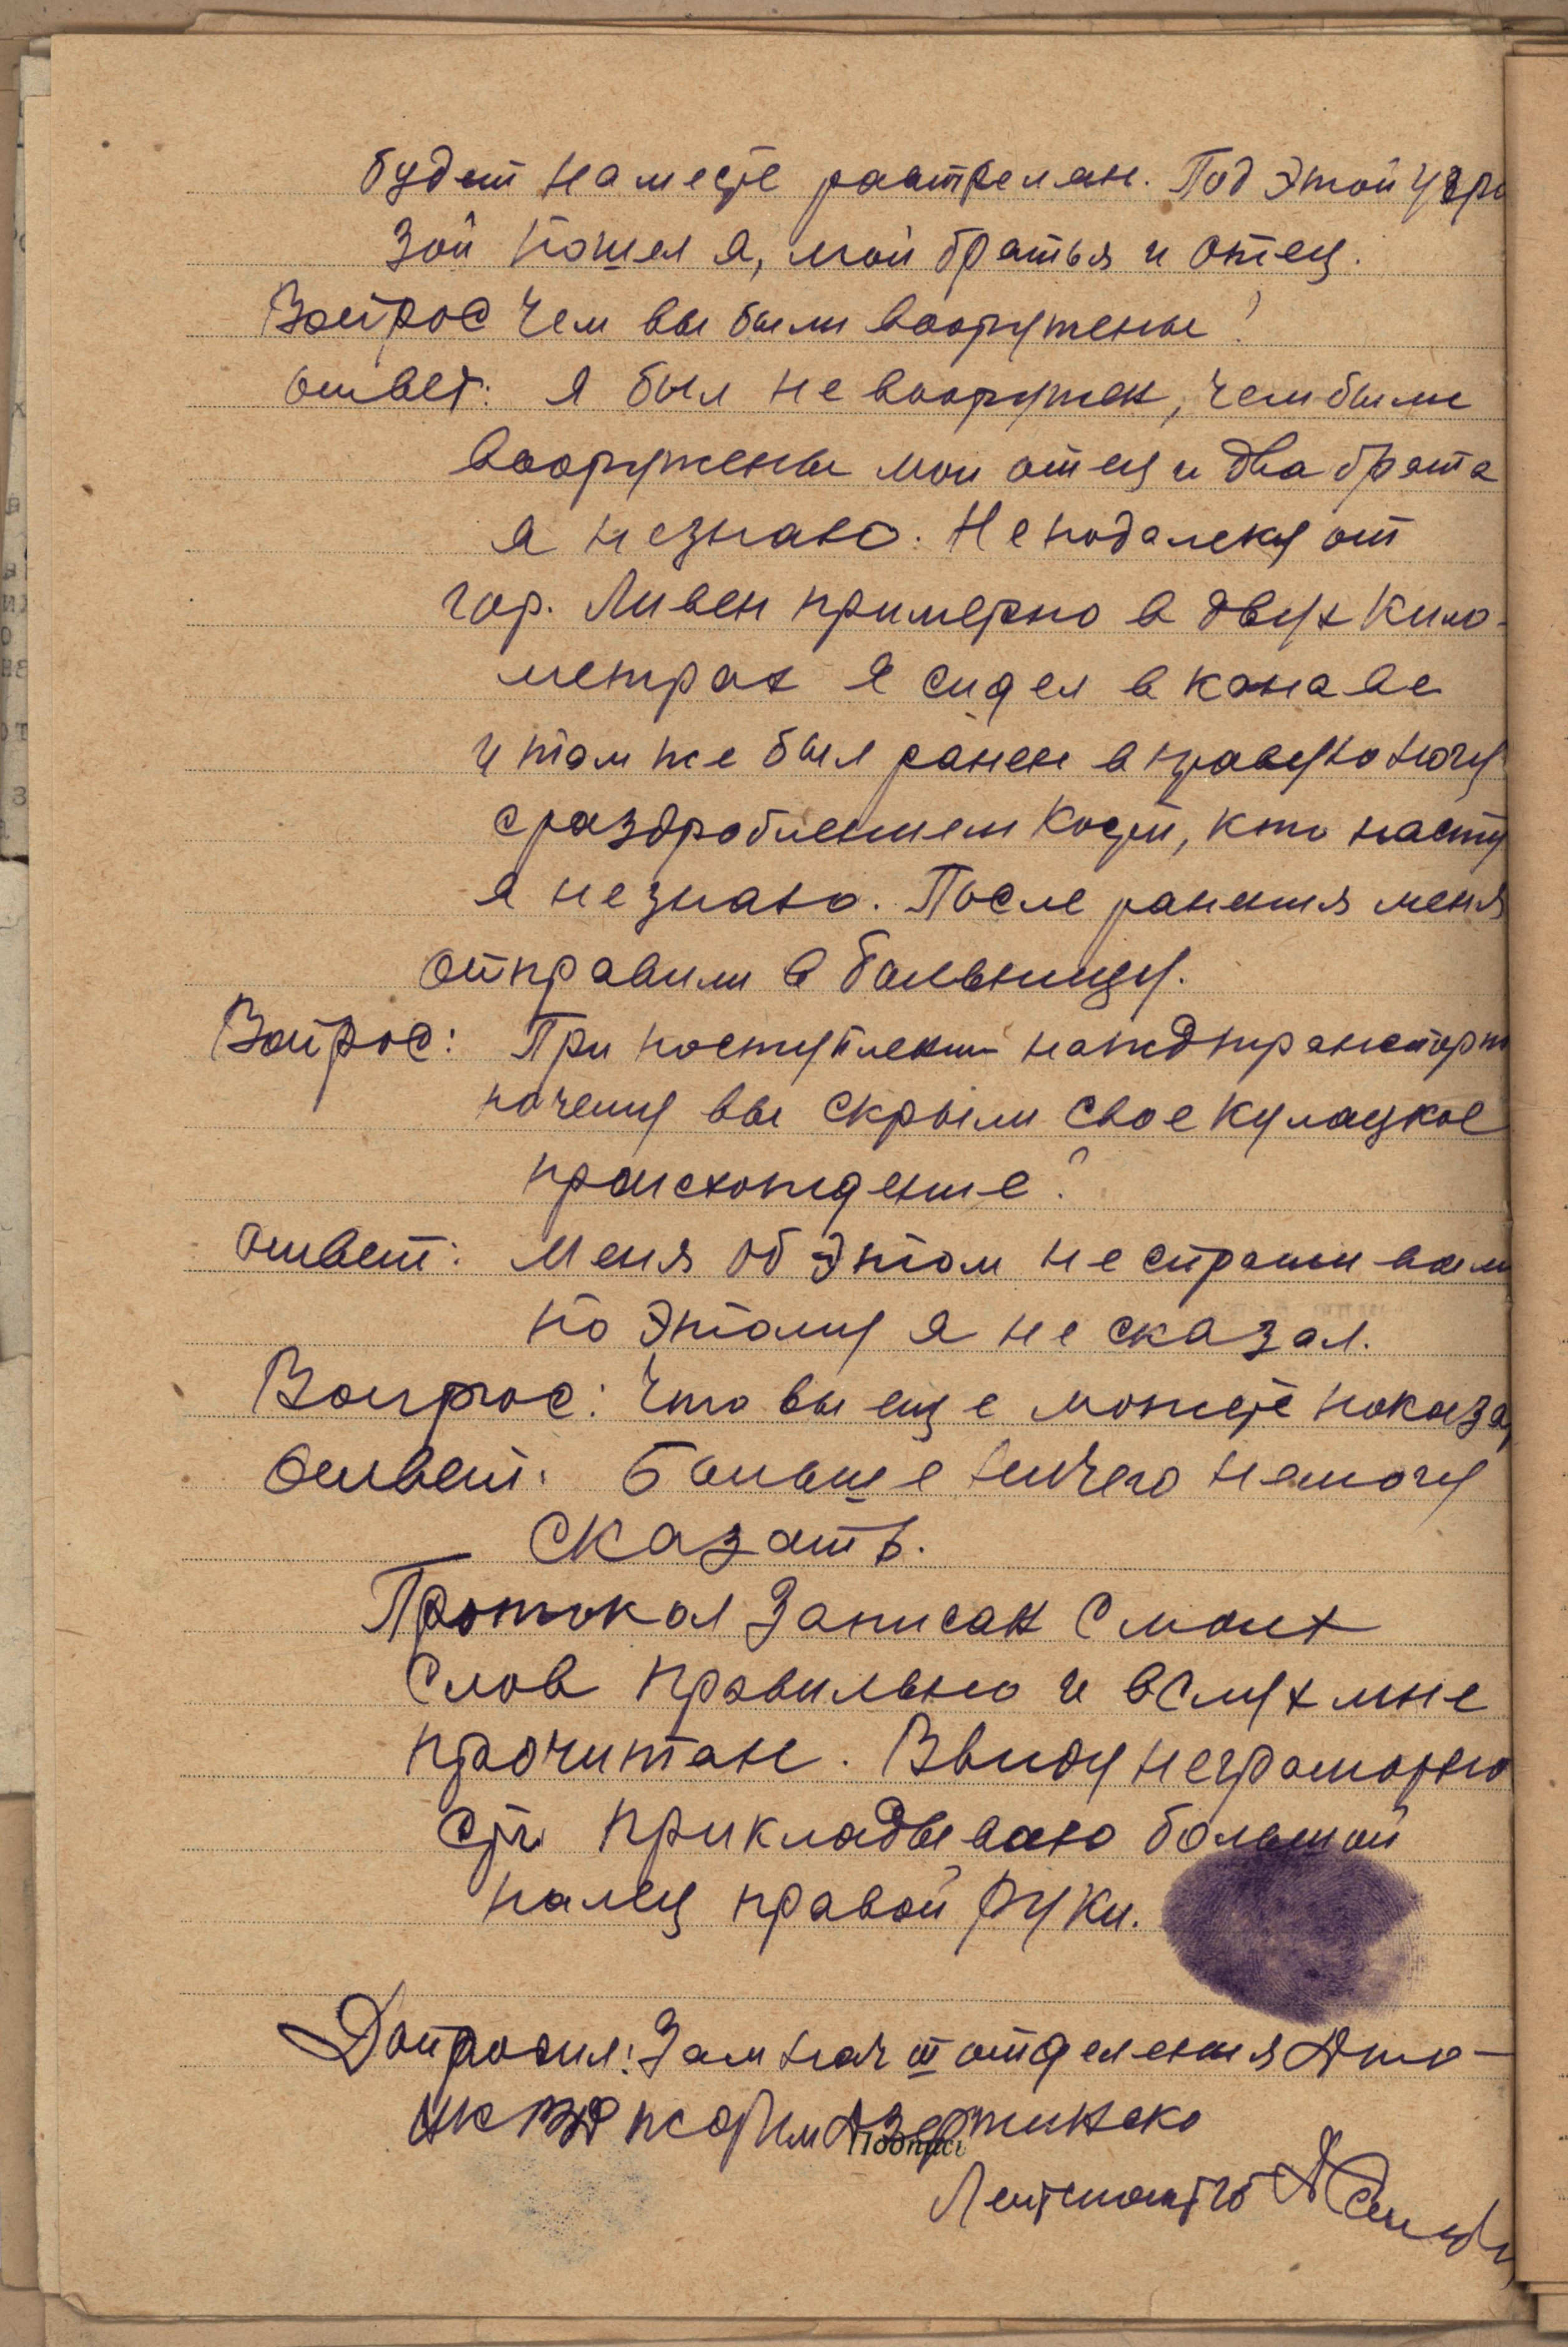 будет на месте раатрелян. Под этой угро
зой пошел я, мои братья и отец.
Вопрос Чем вы были вооружены?
ответ: я был не вооружен, чем были
вооружены мои отец и два брата
я незнаю. Не подалеку от
гор. Ливен примерно в двух кило-
метрах я сидел в канаве
и там же был ранен в правую ногу
с раздроблением кости, кто насту
я не знаю. После ранения меня
отправили в больницу.
Вопрос: При поступлении на ждтранспорт
почему вы скрыли свое кулацкое
происхождение?
ответ: Меня об этом не спрашивали
по этому я не сказал.
Вопрос: Что вы еще можете показа
Ответ: Больше ничего немогу
сказать.
Протокол записан с моих
слов правильно и вслух мне
прочитан. Ввиду неграмотно
сти прикладываю большой
палец правой руки.
Допросил: Зам нач III отделения
жд им Дзержинско
Подпись
Лейтенант гб